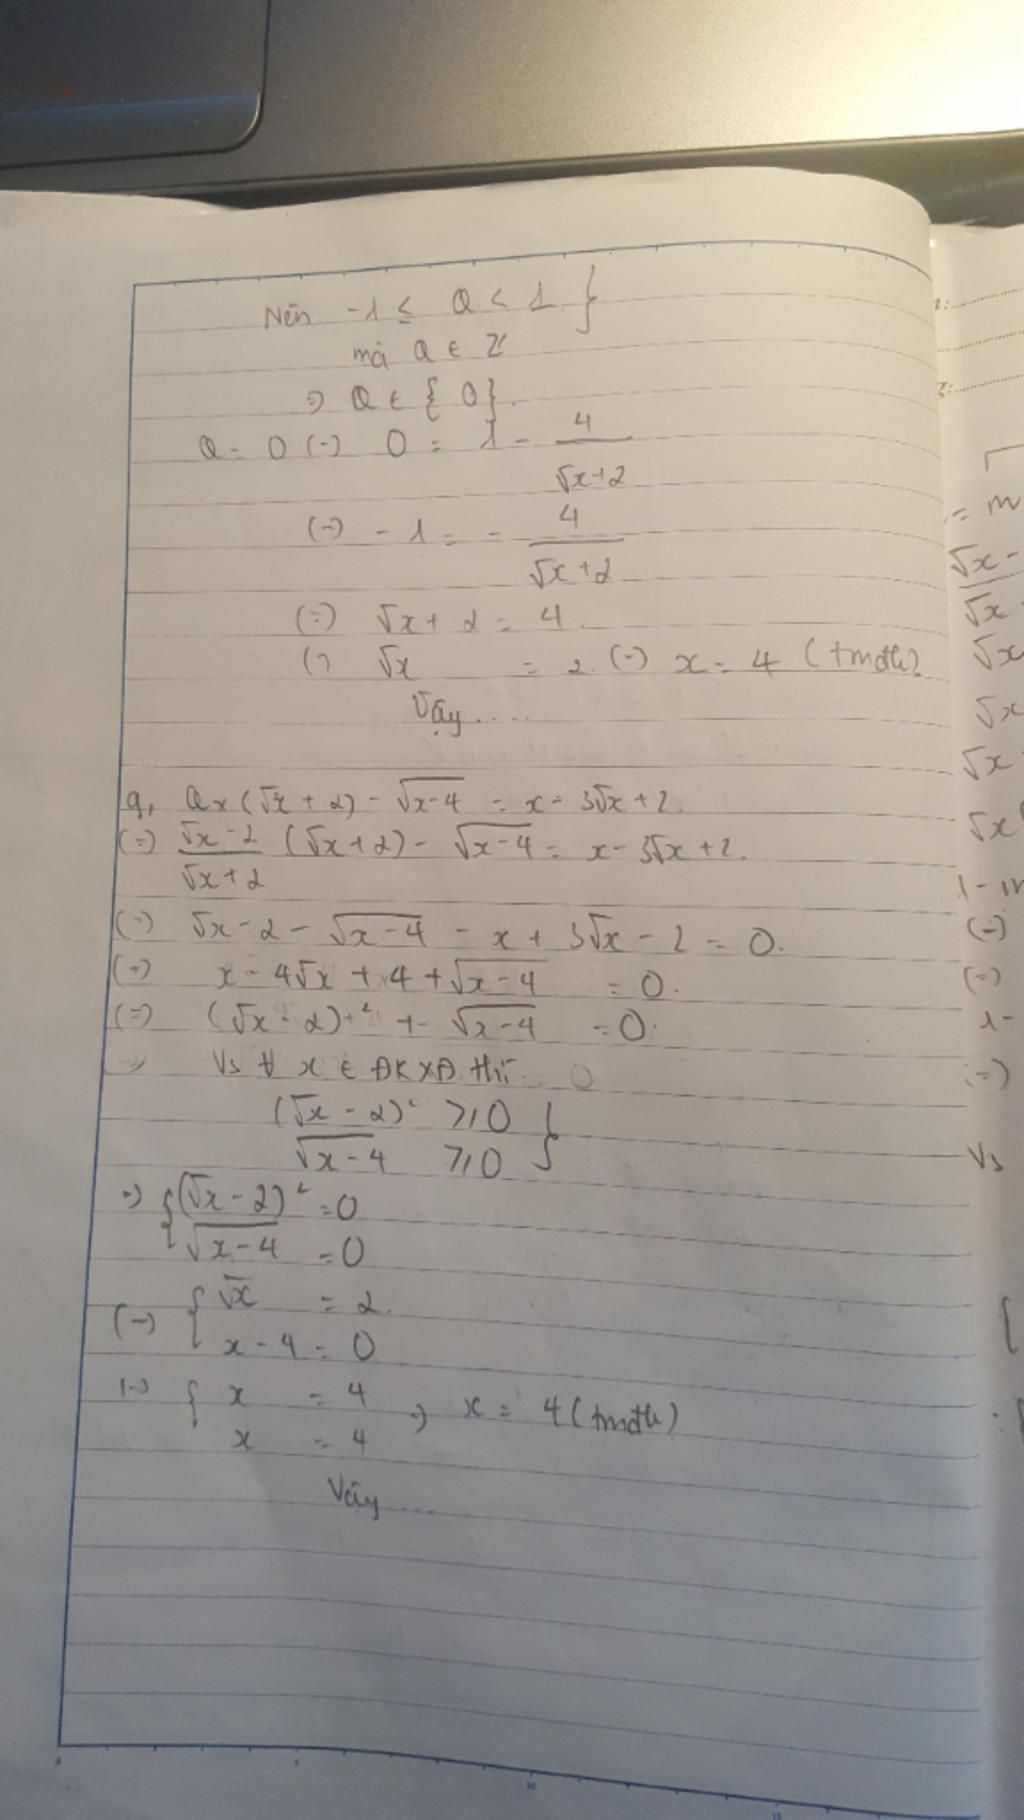 Nên -1 ≤ Q < 1 }
mà Q ∈ Z
=) Q ∈ { 0 }.
Q = 0 (=) 0 = 1 - 4/(√x+2)
(=) - 1 = - 4/(√x+2)
(=) √x + 2 = 4
(=) √x = 2 (=) x = 4 (tmđk)
Vậy ....
g, Q x (√x + 2) - √(x-4) = x - 3√x + 2.
(=) (√x - 2)/(√x + 2) (√x + 2) - √(x-4) = x - 3√x + 2.
(=) √x - 2 - √(x-4) - x + 3√x - 2 = 0.
(=) x - 4√x + 4 + √(x-4) = 0.
(=) (√x - 2)² + √(x-4) = 0.
Vs ∀ x ∈ ĐKXĐ thì
(√x - 2)² ≥ 0 }
√(x-4) ≥ 0 }
=) { (√x - 2)² = 0
{ √(x-4) = 0
(=) { √x = 2.
{ x - 4 = 0
(=) { x = 4 =) x = 4 (tmđk)
{ x = 4
Vậy ...
= m
√x -
√x
√x
√x
√x
√x
1 - m
(=)
(=)
1 -
(=)
Vs
0
5
10
15